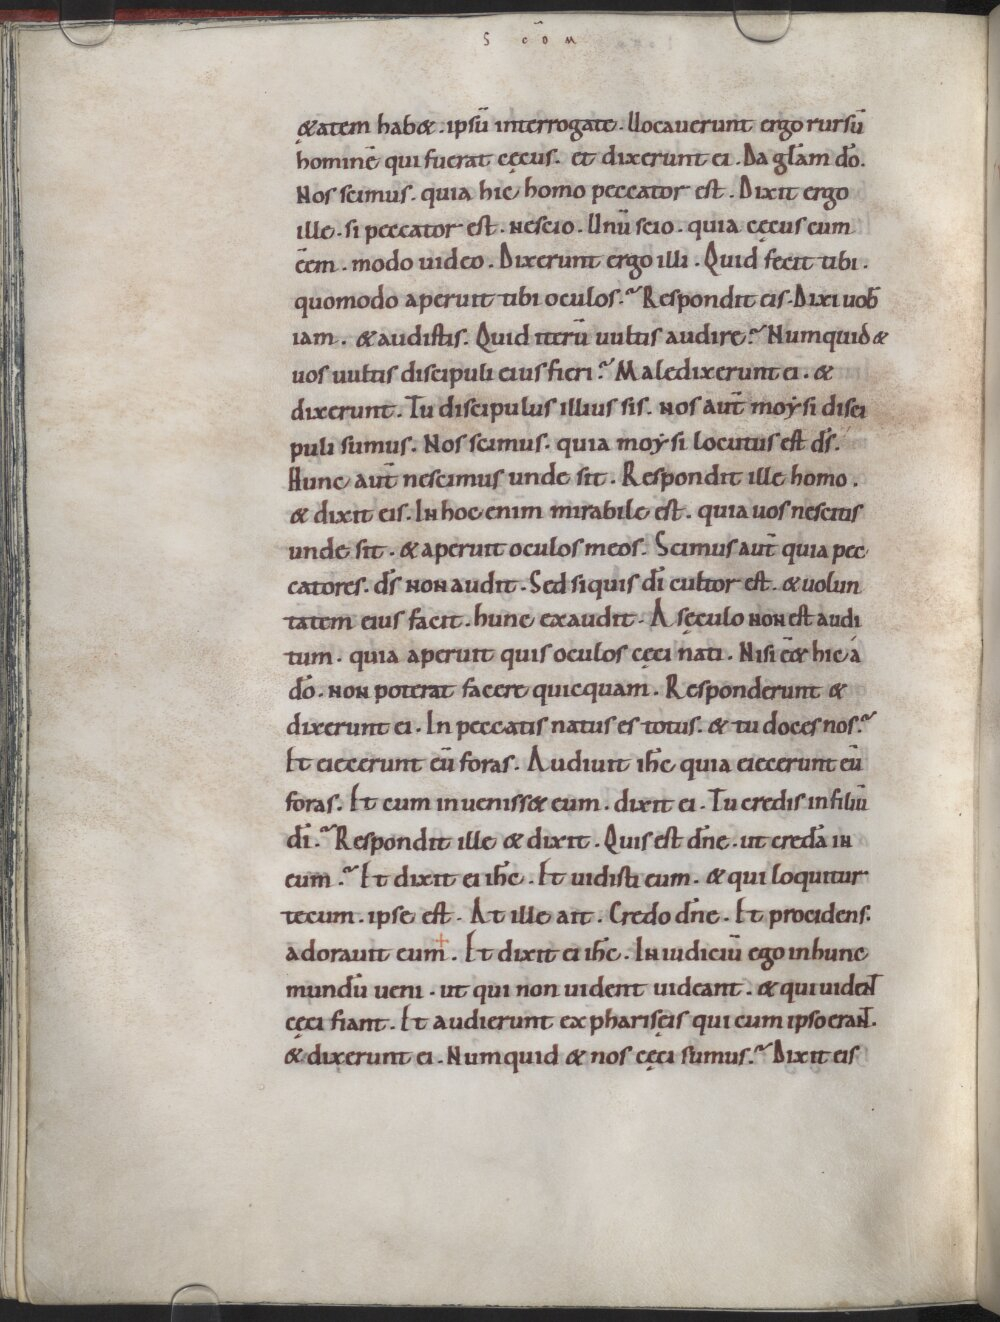 S c̄ o M
&atem hab&. ipsū interrogate. Uocauerunt ergo rursū
hominē qui fuerat cęcus. et dixerunt ei. Da gl̄am dō.
Nos scimus. quia hic homo peccator est. Dixit ergo
ille. si peccator est. nescio. Unū scio. quia cęcus cum
cēm. modo uideo. Dixerunt ergo illi. Quid fecit tibi.
quomodo aperuit tibi oculos? Respondit eis. Dixi uob̄
iam. & audistis. Quid iterū uultis audire? Numquid &
uos uultis discipuli eius fieri? Maledixerunt ei. &
dixerunt. Tu discipulus illius sis. nos aut̄ moẏsi disci
puli sumus. Nos scimus. quia moẏsi locutus est d̄s.
Hunc aut̄ nescimus unde sit. Respondit ille homo.
& dixit eis. In hoc enim mirabile est. quia uos nescitis
unde sit. & aperuit oculos meos. Scimus aut̄ quia pec
catores. d̄s non audit. Sed siquis dī cultor est. & uolun
tatem eius facit. hunc exaudit. A sęculo non est audi
tum. quia aperuit quis oculos cęci nati. Nisi ēe& hic á
dō. non poterat facere quicquam. Responderunt &
dixerunt ei. In peccatis natus es totus. & tu doces nos?
Et eiecerunt eū foras. Audiuit ih̄c quia eiecerunt eū
foras. Et cum inueniss& eum. dixit ei. Tu credis in filiū
dī? Respondit ille & dixit. Quis est dn̄e. ut credā in
eum? Et dixit ei ih̄c. Et uidisti eum. & qui loquitur
tecum. ipse est. At ille ait. Credo dn̄e. Et procidens.
adorauit eum. Et dixit ei ih̄c. In iudiciū ego in hunc
mundū ueni. ut qui non uident uideant. & qui uident
cęci fiant. Et audierunt ex pharisęis qui cum ipso erant.
& dixerunt ei. Numquid & nos cęci sumus? Dixit eis